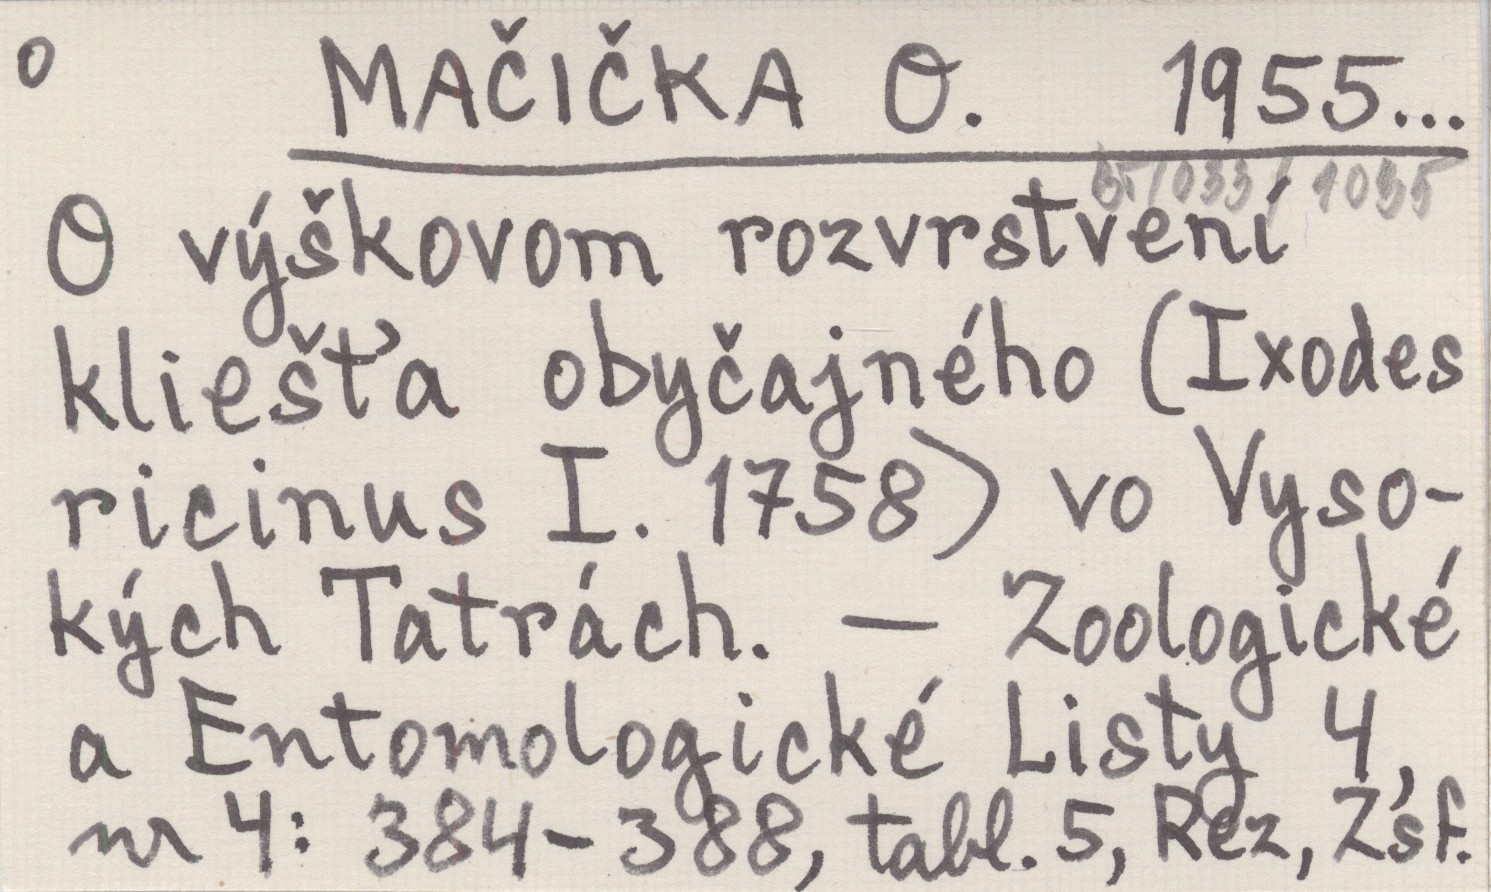 o MAČIČKA O. 1955...
O výškovom rozvrstvení
kliešťa obyčajného (Ixodes
ricinus I. 1758) vo Vyso-
kých Tatrách. — Zoologické
a Entomologické Listy 4,
nr 4: 384-388, tabl. 5, Rez, Zsf.